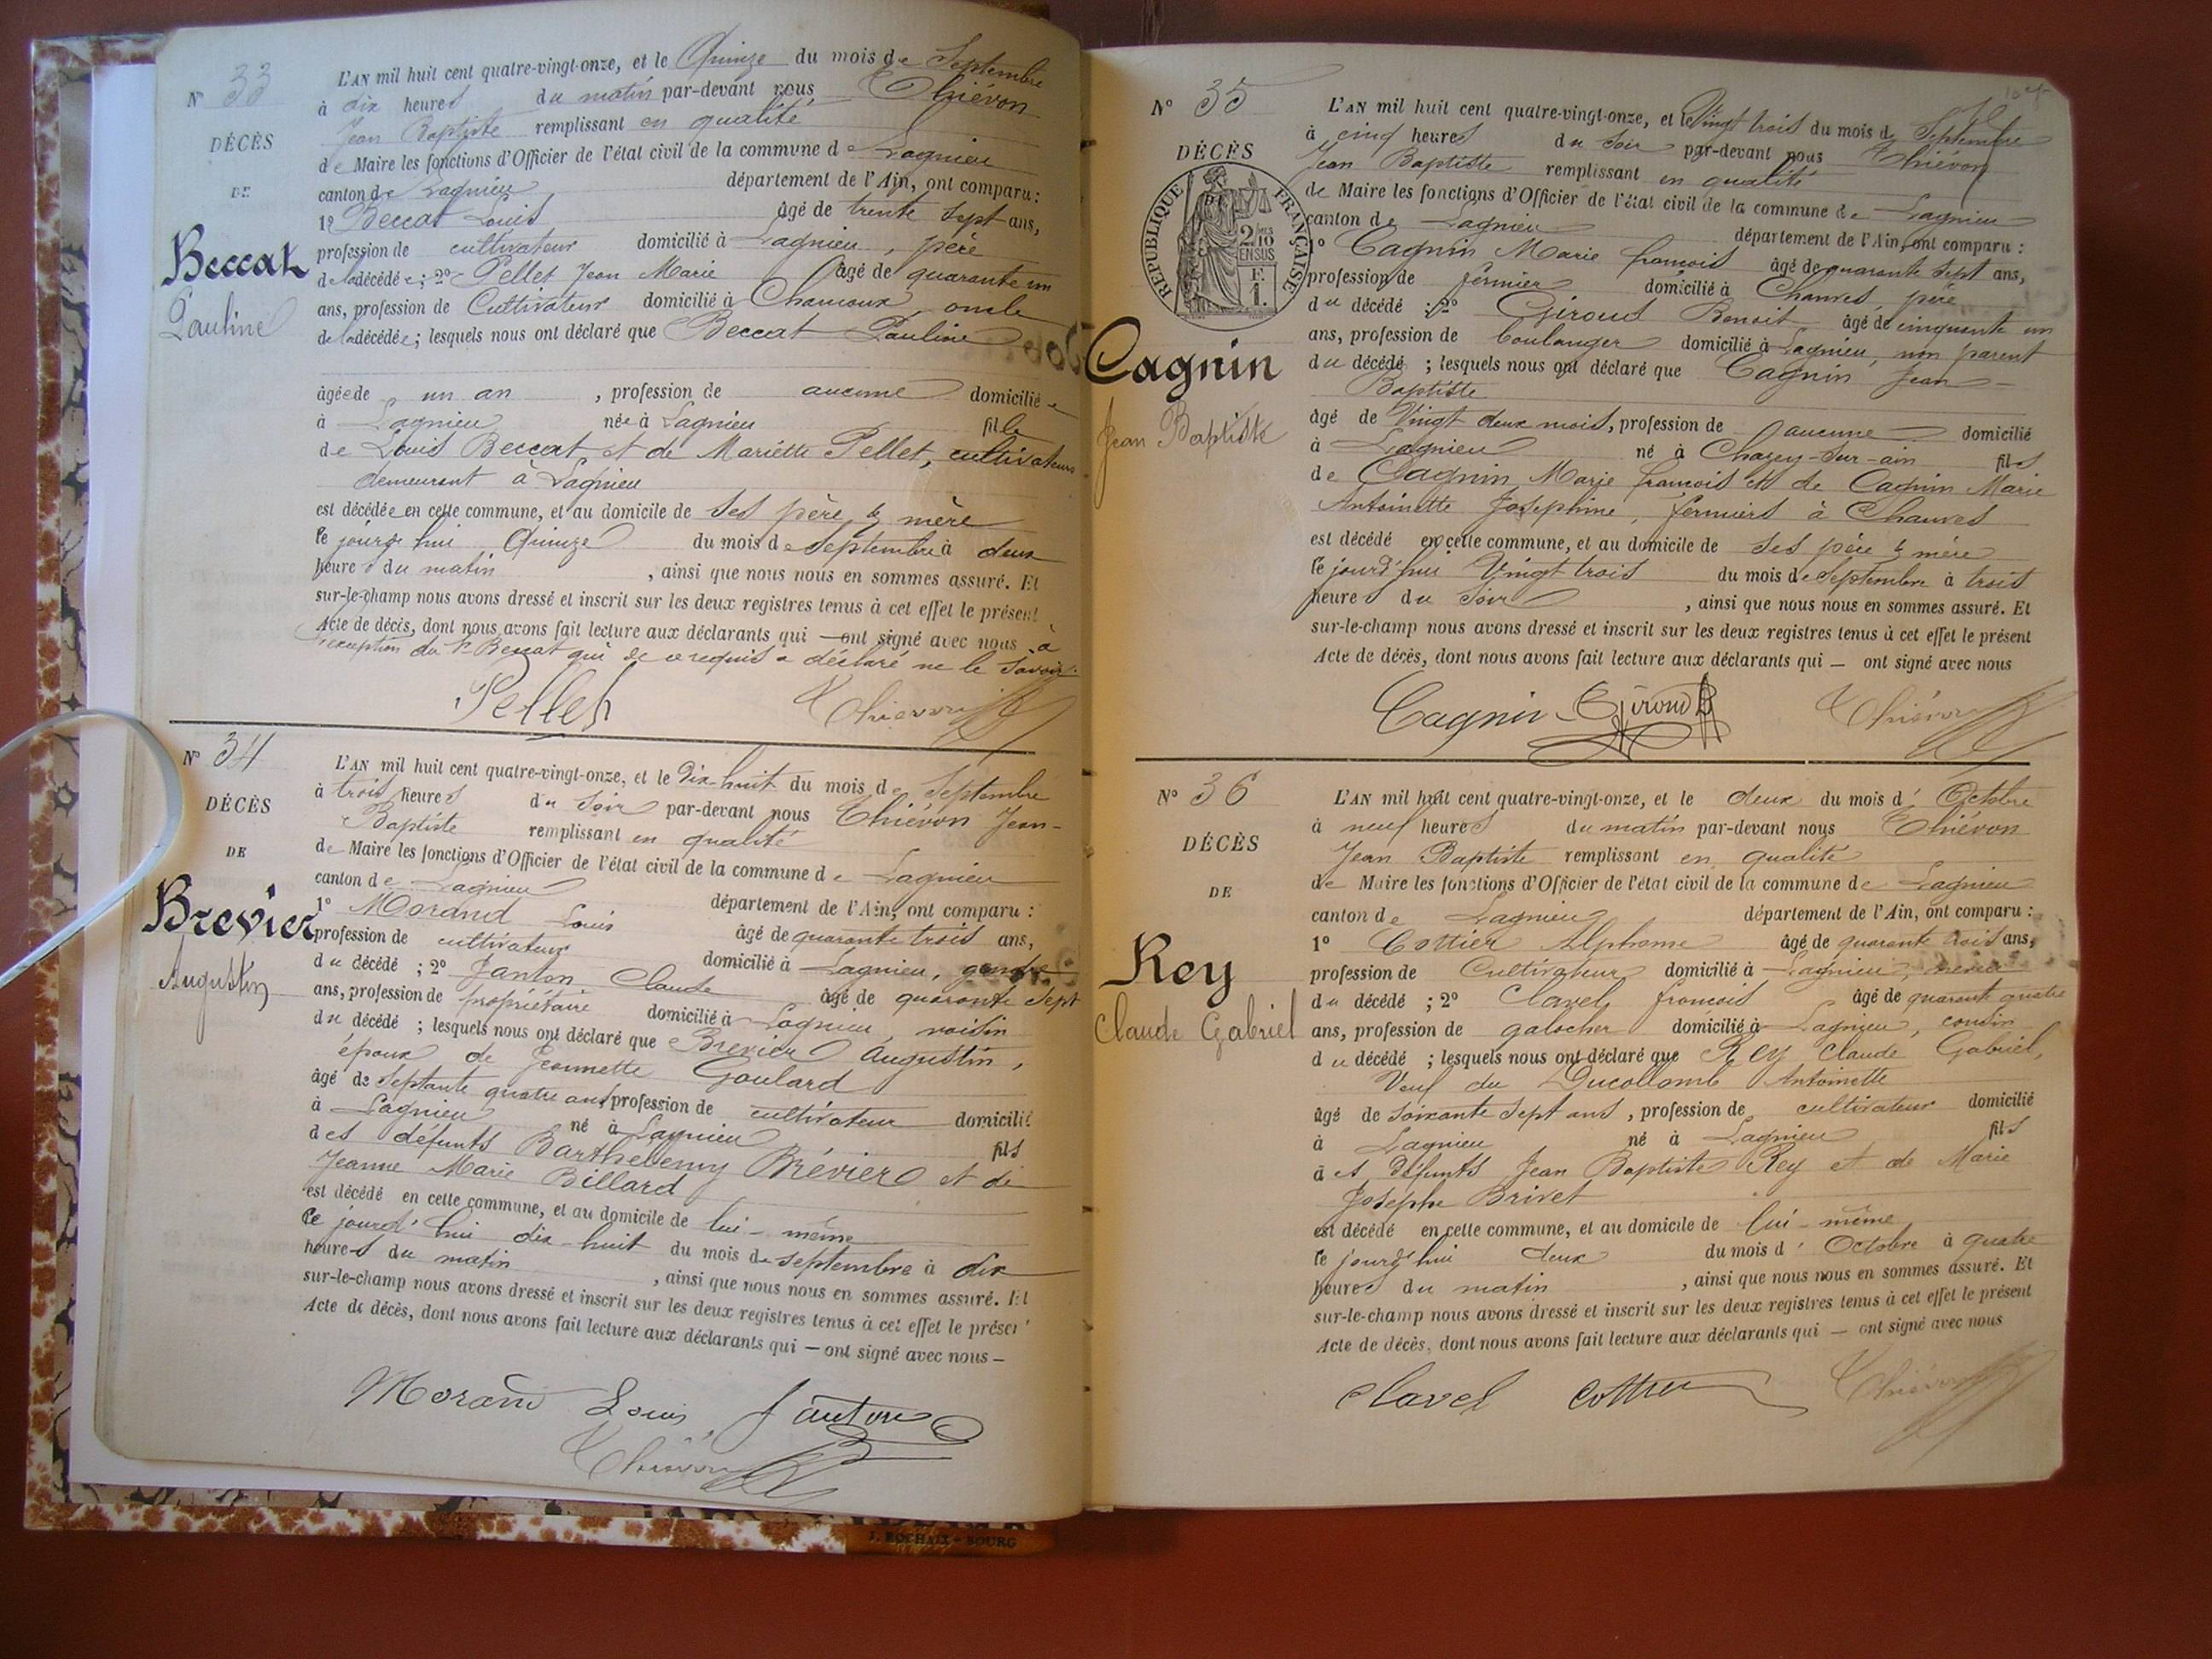 N° 33
DÉCÈS
DE
Beccat
Pauline
L'AN mil huit cent quatre-vingt-onze, et le Quinze du mois de Septembre
à dix heures du matin par-devant nous Thiévon
Jean Baptiste remplissant en qualité
de Maire les fonctions d'Officier de l'état civil de la commune de Lagnieu
canton de Lagnieu département de l'Ain, ont comparu :
1° Beccat Louis âgé de trente sept ans,
profession de cultivateur domicilié à Lagnieu, père
de la décédée ; 2° Pellet Jean Marie âgé de quarante un
ans, profession de Cultivateur domicilié à Chamoux, oncle
de la décédée ; lesquels nous ont déclaré que Beccat Pauline
âgée de un an, profession de aucune domiciliée
à Lagnieu née à Lagnieu fille
de Louis Beccat et de Mariette Pellet, cultivateurs
demeurant à Lagnieu
est décédée en cette commune, et au domicile de ses père & mère
le jourd'hui Quinze du mois de Septembre à deux
heures du matin, ainsi que nous nous en sommes assuré. Et
sur-le-champ nous avons dressé et inscrit sur les deux registres tenus à cet effet le présent
Acte de décès, dont nous avons fait lecture aux déclarants qui — ont signé avec nous à
l'exception du Sr Beccat qui de ce requis a déclaré ne le savoir.
Pellet Thiévon
N° 34
DÉCÈS
DE
Brevier
Augustin
L'AN mil huit cent quatre-vingt-onze, et le Dix-huit du mois de Septembre
à trois heures du soir par-devant nous Thiévon Jean-
Baptiste remplissant en qualité
de Maire les fonctions d'Officier de l'état civil de la commune de Lagnieu
canton de Lagnieu département de l'Ain, ont comparu :
1° Morand Louis âgé de quarante trois ans,
profession de cultivateur domicilié à Lagnieu, gendre
du décédé ; 2° Janton Claude âgé de quarante sept
ans, profession de propriétaire domicilié à Lagnieu, voisin
du décédé ; lesquels nous ont déclaré que Brevier Augustin,
époux de Jeannette Goulard
âgé de septante quatre ans, profession de cultivateur domicilié
à Lagnieu né à Lagnieu fils
des défunts Barthelemy Brévier et de
Jeanne Marie Billard
est décédé en cette commune, et au domicile de lui-même
le jourd'hui dix-huit du mois de Septembre à dix
heures du matin, ainsi que nous nous en sommes assuré. Et
sur-le-champ nous avons dressé et inscrit sur les deux registres tenus à cet effet le présent
Acte de décès, dont nous avons fait lecture aux déclarants qui — ont signé avec nous —
Morand Louis Janton
Thiévon
J. ROCHAIX - BOURG
N° 35
DÉCÈS
RÉPUBLIQUE FRANÇAISE
2/10
EN SUS
F.
1.
Cagnin
Jean Baptiste
L'AN mil huit cent quatre-vingt-onze, et le Vingt trois du mois de Septembre
à cinq heures du soir par-devant nous Thiévon
Jean Baptiste remplissant en qualité
de Maire les fonctions d'Officier de l'état civil de la commune de Lagnieu
canton de Lagnieu département de l'Ain, ont comparu :
1° Cagnin Marie françois âgé de quarante sept ans,
profession de fermier domicilié à Chanves, père
du décédé ; 2° Giroud Benoit âgé de cinquante un
ans, profession de boulanger domicilié à Lagnieu, non parent
du décédé ; lesquels nous ont déclaré que Cagnin Jean-
Baptiste
âgé de Vingt deux mois, profession de aucune domicilié
à Lagnieu né à Chazey-sur-ain fils
de Cagnin Marie françois et de Cagnin Marie
Antoinette Josephine, fermiers à Chanves
est décédé en cette commune, et au domicile de ses père & mère
le jourd'hui Vingt trois du mois de Septembre à trois
heures du soir, ainsi que nous nous en sommes assuré. Et
sur-le-champ nous avons dressé et inscrit sur les deux registres tenus à cet effet le présent
Acte de décès, dont nous avons fait lecture aux déclarants qui — ont signé avec nous
Cagnin Giroud B Thiévon
N° 36
DÉCÈS
DE
Rey
Claude Gabriel
L'AN mil huit cent quatre-vingt-onze, et le deux du mois d'Octobre
à neuf heures du matin par-devant nous Thiévon
Jean Baptiste remplissant en qualité
de Maire les fonctions d'Officier de l'état civil de la commune de Lagnieu
canton de Lagnieu département de l'Ain, ont comparu :
1° Cottier Alphonse âgé de quarante trois ans,
profession de Cultivateur domicilié à Lagnieu, neveu
du décédé ; 2° Clavel françois âgé de quarante quatre
ans, profession de galocher domicilié à Lagnieu, cousin
du décédé ; lesquels nous ont déclaré que Rey Claude Gabriel,
Veuf de Ducollomb Antoinette
âgé de soixante sept ans, profession de cultivateur domicilié
à Lagnieu né à Lagnieu fils
des Défunts Jean Baptiste Rey et de Marie
Josephe Brivet
est décédé en cette commune, et au domicile de lui-même
le jourd'hui deux du mois d'Octobre à quatre
heures du matin, ainsi que nous nous en sommes assuré. Et
sur-le-champ nous avons dressé et inscrit sur les deux registres tenus à cet effet le présent
Acte de décès, dont nous avons fait lecture aux déclarants qui — ont signé avec nous
Clavel Cottier Thiévon